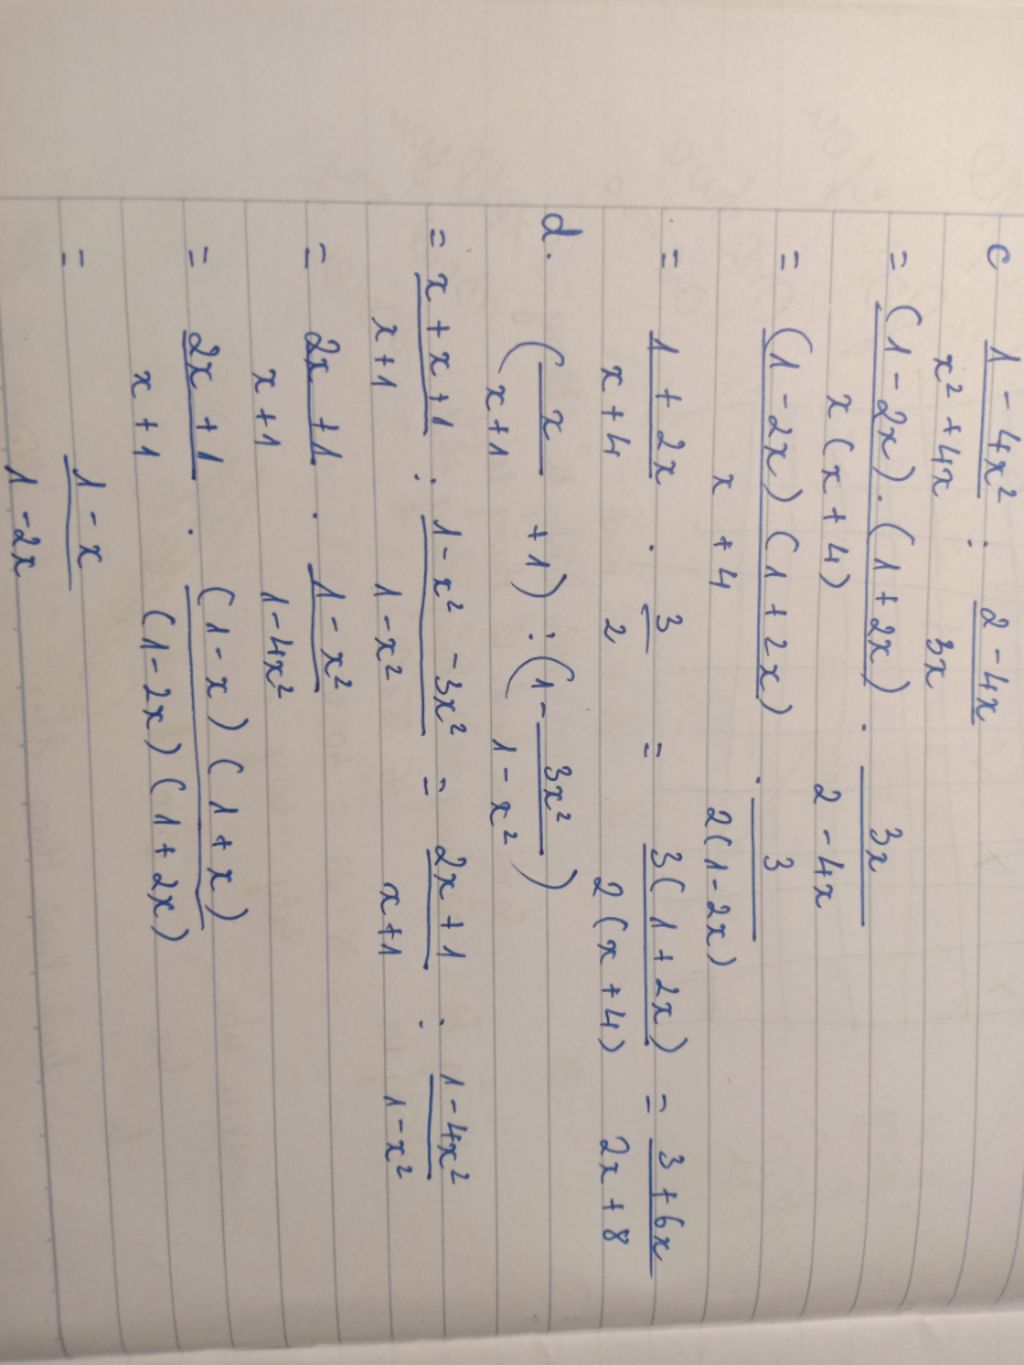 c (1 - 4x²)/(x² + 4x) : (2 - 4x)/(3x)
= ((1 - 2x) . (1 + 2x))/(x(x + 4)) . (3x)/(2 - 4x)
= ((1 - 2x)(1 + 2x))/(x + 4) . 3/(2(1 - 2x))
= (1 + 2x)/(x + 4) . 3/2 = (3(1 + 2x))/(2(x + 4)) = (3 + 6x)/(2x + 8)
d. (x/(x + 1) + 1) : (1 - (3x²)/(1 - x²))
= (x + x + 1)/(x + 1) : (1 - x² - 3x²)/(1 - x²) = (2x + 1)/(x + 1) : (1 - 4x²)/(1 - x²)
= (2x + 1)/(x + 1) . (1 - x²)/(1 - 4x²)
= (2x + 1)/(x + 1) . ((1 - x)(1 + x))/((1 - 2x)(1 + 2x))
= (1 - x)/(1 - 2x)